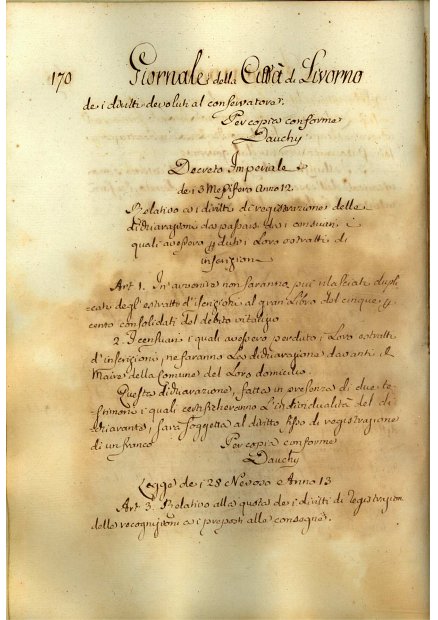 170 Giornale della Città di Livorno
dei diritti devoluti al conservatore.
Per copia conforme
Dauchy
Decreto Imperiale
dei 3 Messifero Anno 12
Relativo ai diritti di registrazione delle
dichiarazioni da farsi dai censuari i
quali avessero perduti i Loro estratti di
inscrizione
Art. 1. In avvenire non saranno più rilasciati dupli-
cati degl'estratti d'iscrizioni al gran Libro del cinque p
cento consolidati del debito vitalizio
2. I censuari i quali avessero perduto i Loro estratti
d'inscrizioni, ne faranno La dichiarazione davanti il
Maire della Comune del Loro domicilio.
Questa dichiarazione, fatta in presenza di due te-
stimoni i quali certificheranno L'individualità del di-
chiarante, sarà soggetta al diritto fisso di registrazione
di un franco
Per copia conforme
Dauchy
Legge dei 28 Nevoso Anno 13
Art. 3. Relativo alla quota dei diritti di registrazion
delle recognizioni ai preposti alle consegne.